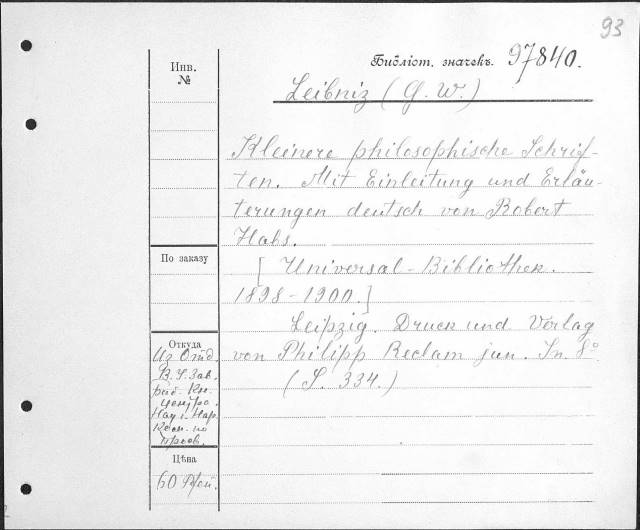 93
Библіот. значекъ. 97840.
Инв.
№
Leibniz (G. W.)
Kleinere philosophische Schrif-
ten. Mit Einleitung und Erläu-
terungen deutsch von Robert
Habs.
По заказу
[Universal-Bibliothek.
1898-1900.]
Leipzig. Druck und Verlag
Откуда
von Philipp Reclam jun. In 8°
(S. 334.)
Из Отд.
В. У. Зав.
раб. Кн.
центра.
Нар.
по
Цѣна
60